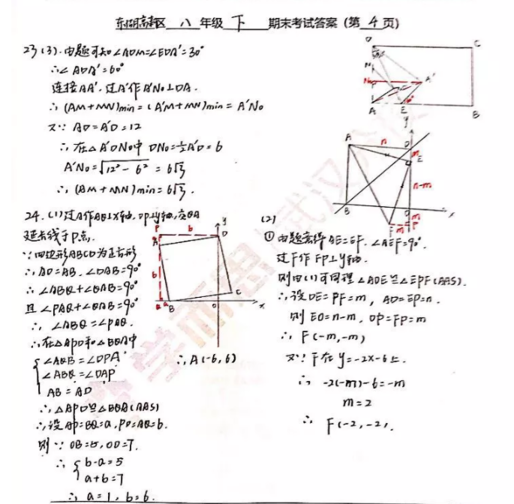 东湖高新区 八 年级 下 期末考试答案 (第 4 页)
23(3). 由题可知∠ADM=∠EDA'=30°
∴∠ADA'=60°
连接AA'. 过A'作A'N₀⊥DA.
∴(AM+MN)min=(A'M+MN)min = A'N₀
又∵ AD=A'D=12
∴在△A'DN₀中 DN₀=½A'D=6
A'N₀=√12²-6²=6√3
∴(AM+MN)min=6√3.
24. (1)过A作AQ⊥X轴, DP⊥y轴, 交QA
延长线于P点.
∵四边形ABCD为正方形
∴AD=AB. ∠DAB=90°
∴∠ABQ+∠QAB=90°
且∠PAD+∠QAB=90°
∴ ∠ABQ=∠PAD.
∴在△APD和△BQA中
∠AQB=∠DPA
∠ABQ=∠DAP
AB=AD
∴△APD≌△BQA(AAS)
∴设AP=BQ=a, PD=AQ=b.
则∵ OB=5, OD=7.
∴ b-a=5
a+b=7
∴ a=1, b=6.
∴A(-6,6)
(2)
① 由题意得AE=EF. ∠AEF=90°.
过F作FP⊥y轴.
则由(1)可同理△ADE≌△EPF(AAS).
∴设DE=PF=m, AD=EP=n.
则EO=n-m, OP=FP=m
∴ F(-m,-m)
又∵F在y=-2x-6上.
∴ -2(-m)-6=-m
m=2
∴ F(-2,-2).